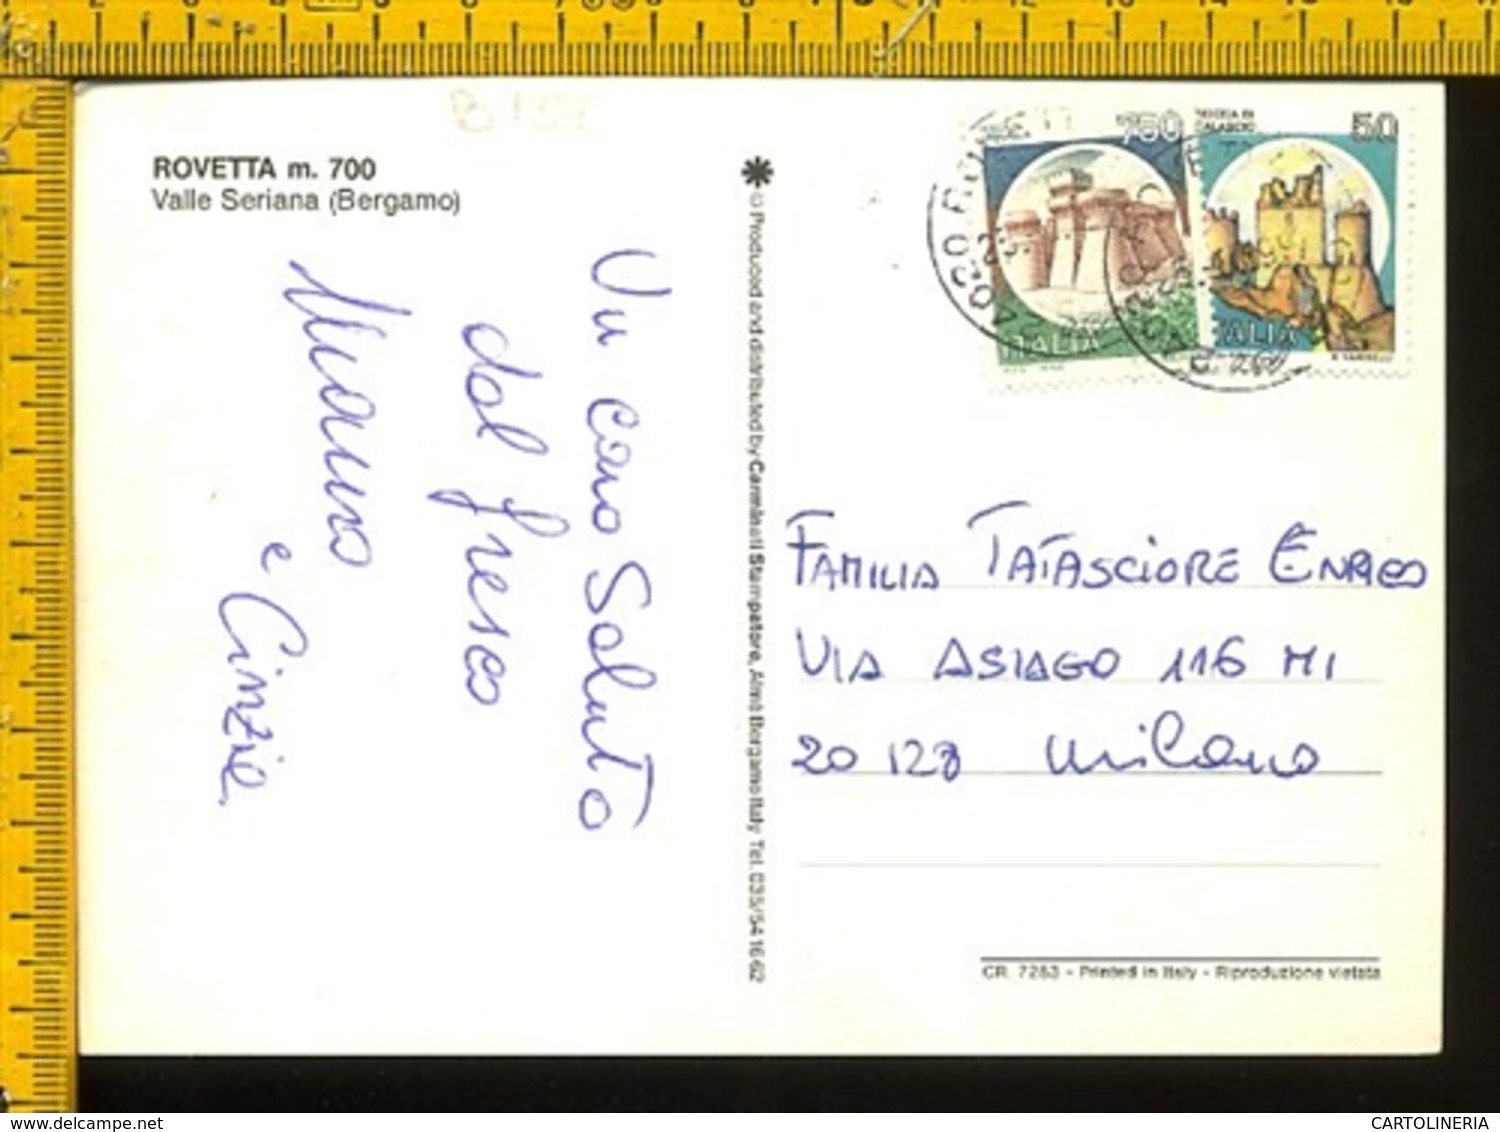 ROVETTA m. 700
Valle Seriana (Bergamo)
Un caro Saluto
dal fresco
Mauro
e Cinzia
© Produced and distributed by Carminati Stampatore, Almè Bergamo Italy Tel. 035/54 16 62
750
ITALIA
ROCCA DI
CALASCIO
50
ITALIA
FAMILIA TATASCIORE ENRICO
VIA ASIAGO 116 MI
20128 Milano
CR. 7283 - Printed in Italy - Riproduzione vietata
www.delcampe.net
CARTOLINERIA